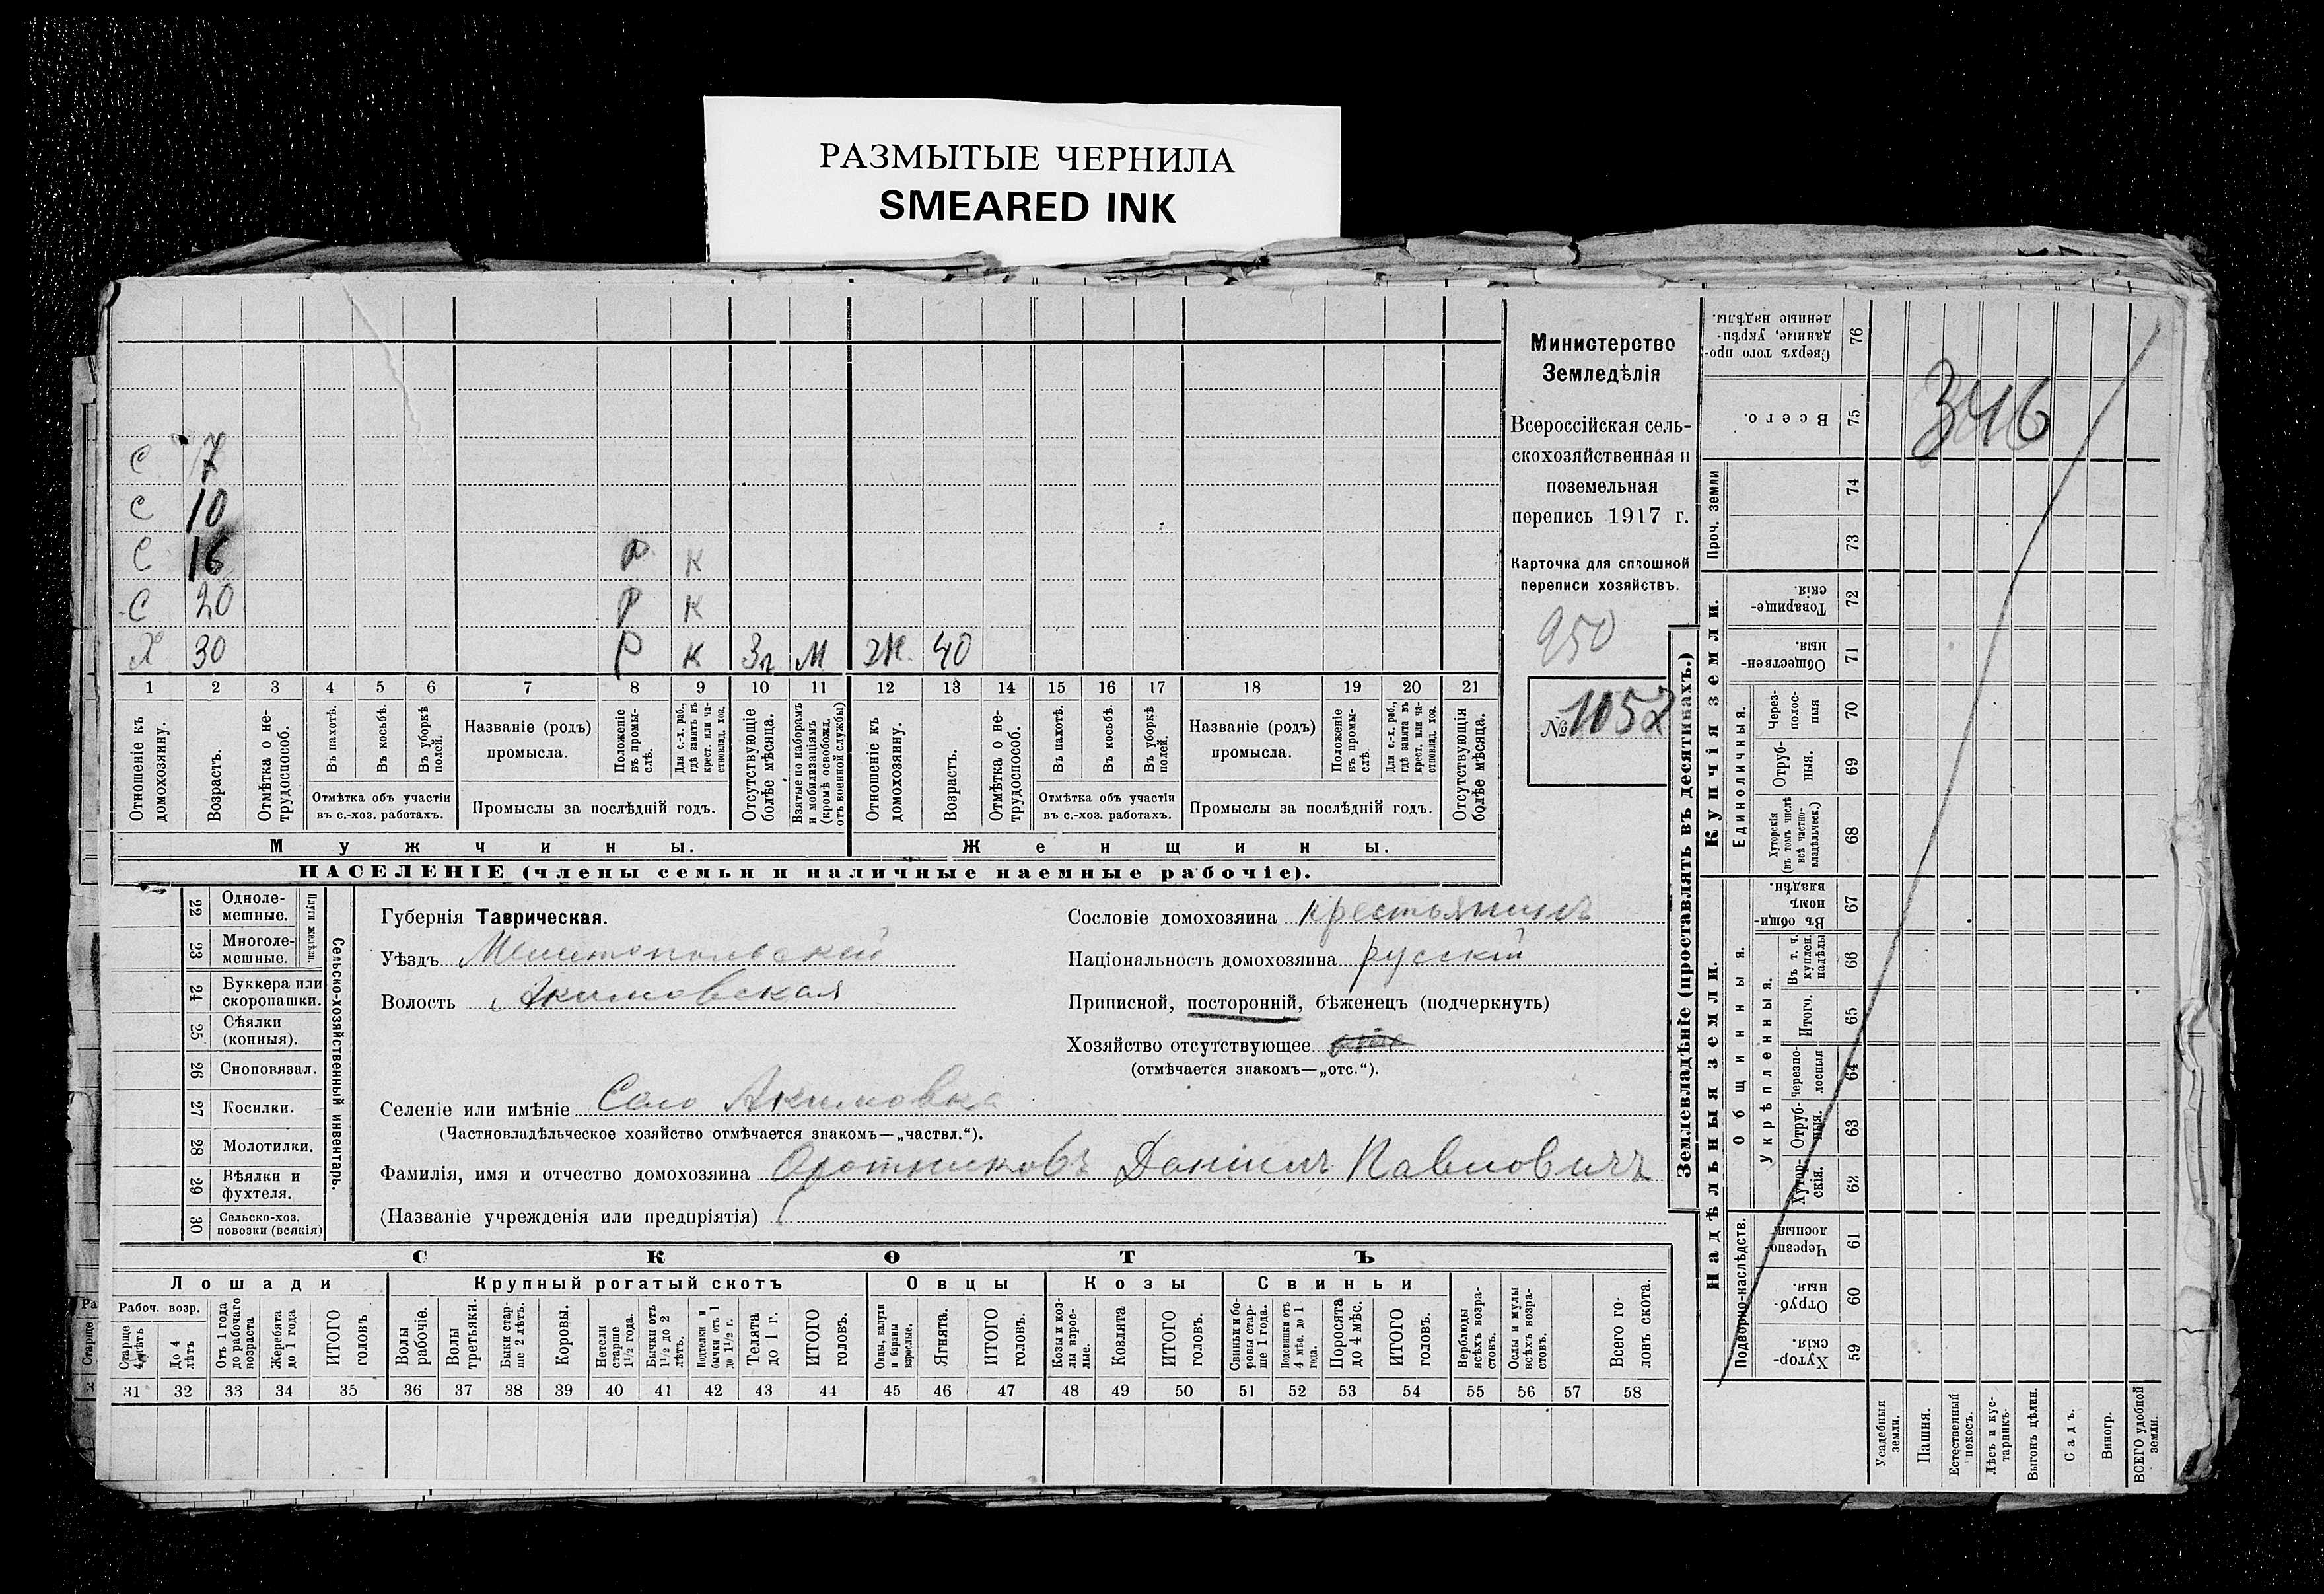 РАЗМЫТЫЕ ЧЕРНИЛА
SMEARED INK
С 7
С 10
С 16 Р К
С 20 Р К
Х 30 Р К 3г М Ж 40
1 2 3 4 5 6 7 8 9 10 11 12 13 14 15 16 17 18 19 20 21
Отношеніе къ домохозяину.
Возрастъ.
Отмѣтка о не-трудоспособ.
Въ пахотѣ.
Въ косьбѣ.
Въ уборкѣ полей.
Отмѣтка объ участіи
въ с.-хоз. работахъ.
Названіе (родъ)
промысла.
Положеніе въ промы-слѣ.
Для с.-х. раб., гдѣ занятъ въ крест. или ча-стновлад. хоз.
Промыслы за послѣдній годъ.
Отсутствующіе болѣе мѣсяца.
Взятые по наборамъ и мобилизаціямъ (кромѣ освобожд. отъ военной службы)
Отношеніе къ домохозяину.
Возрастъ.
Отмѣтка о не-трудоспособ.
Въ пахотѣ.
Въ косьбѣ.
Въ уборкѣ полей.
Отмѣтка объ участіи
въ с.-хоз. работахъ.
Названіе (родъ)
промысла.
Положеніе въ промы-слѣ.
Для с.-х. раб., гдѣ занята въ крест. или ча-стновлад. хоз.
Промыслы за послѣдній годъ.
Отсутствующія болѣе мѣсяца.
Мужчины.
Женщины.
НАСЕЛЕНІЕ (члены семьи и наличные наемные рабочіе).
Министерство
Земледѣлія
Всероссійская сель-
скохозяйственная и
поземельная
перепись 1917 г.
Карточка для сплошной
переписи хозяйствъ.
950
№ 1052
22 Одноле-мешные.
23 Многоле-мешные.
Плуги желѣзн.
24 Буккера или скоропашки.
25 Сѣялки (конныя).
26 Сноповязал.
27 Косилки.
28 Молотилки.
29 Вѣялки и фухтеля.
30 Сельско-хоз. повозки (всякія)
Сельско-хозяйственный инвентарь.
Губернія Таврическая.
Уѣздъ Мелитопольскій
Волость Акимовская
Сословіе домохозяина крестьянинъ
Національность домохозяина русскій
Приписной, посторонній, бѣженецъ (подчеркнуть)
Хозяйство отсутствующее
(отмѣчается знакомъ—„отс.“).
Селеніе или имѣніе Село Акимовка
(Частновладѣльческое хозяйство отмѣчается знакомъ—„частвл.“).
Фамилія, имя и отчество домохозяина Даніилъ Павловичъ
(Названіе учрежденія или предпріятія)
СКОТЪ
Лошади
Крупный рогатый скотъ
Овцы
Козы
Свиньи
Рабоч. возр.
Старше 4 лѣтъ
До 4 лѣтъ
Отъ 1 года до рабочаго возраста
Жеребята до 1 года
ИТОГО головъ
Волы рабочіе.
Волы третьяки.
Быки стар-ше 2 лѣтъ.
Коровы.
Нетели старше 1½ года.
Бычки отъ 1½ до 2 лѣтъ.
Подтелки и бычки отъ 1 до 1½ г.
Телята до 1 г.
ИТОГО головъ.
Овцы, валухи и бараны взрослые.
Ягнята.
ИТОГО головъ.
Козы и коз-лы взрос-лые.
Козлята
ИТОГО головъ.
Свиньи и бо-ровы стар-ше 1 года.
Подсвинки отъ 4 мѣс. до 1 года.
Поросята до 4 мѣс.
ИТОГО головъ.
Верблюды всѣхъ возра-стовъ.
Ослы и мулы всѣхъ возра-стовъ.
Всего го-ловъ скота.
31 32 33 34 35 36 37 38 39 40 41 42 43 44 45 46 47 48 49 50 51 52 53 54 55 56 57 58
Землевладѣніе (проставлять въ десятинахъ.)
Купчія земли.
Надѣльныя земли.
Сверхъ того про-данные, укрѣп-ленные надѣлы. 76
Всего. 75
346
Проч. земли
74
73
Товарище-скія. 72
Обществен-ныя. 71
Единоличныя.
Через-полос-ныя 70
Отруб-ныя. 69
Хуторскія (въ томъ числѣ всѣ частно-владѣльческ.) 68
Общинныя.
Въ общин-номъ владѣн. 67
Укрѣпленныя.
Въ т. ч. куплен. надѣлы 66
Итого. 65
черезпо-лосныя 64
Отруб-ныя. 63
Хутор-скія. 62
Подворно-наслѣдств.
Черезпо-лосныя. 61
Отруб-ныя. 60
Хутор-скія. 59
Усадебныя земли.
Пашня.
Естественный покосъ.
Лѣсъ и кус-тарникъ.
Выгонъ цѣлин.
Садъ.
Виногр.
ВСЕГО удобной земли.